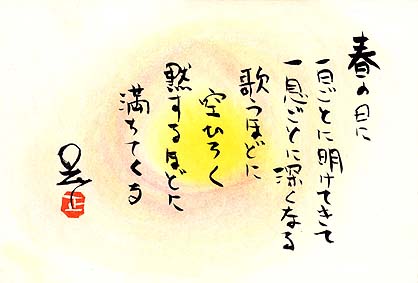 春の日に
一日ごとに明けてきて
一息ごとに深くなる
歌うほどに
空ひろく
黙するほどに
満ちてくる
正